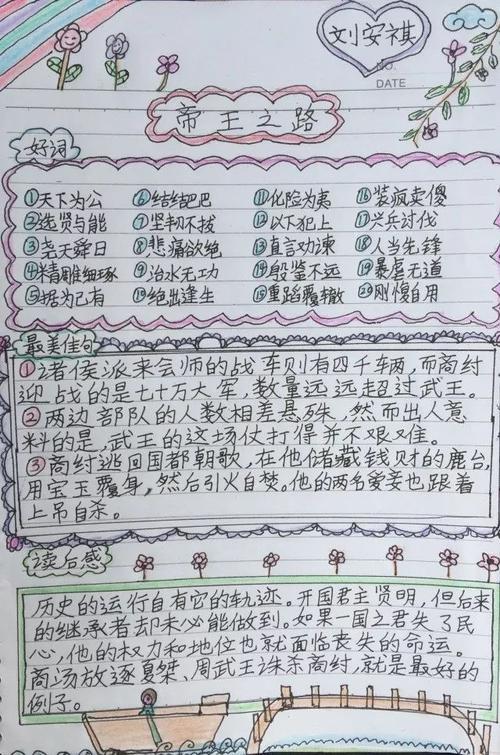 刘安祺
NO.
DATE
帝王之路
好词
①天下为公 ⑥结结巴巴 ⑪化险为夷 ⑯装疯卖傻
②选贤与能 ⑦坚韧不拔 ⑫以下犯上 ⑰兴兵讨伐
③尧天舜日 ⑧悲痛欲绝 ⑬直言劝谏 ⑱人当先锋
④精雕细琢 ⑨治水无功 ⑭殷鉴不远 ⑲暴虐无道
⑤据为己有 ⑩绝出逢生 ⑮重蹈覆辙 ⑳刚愎自用
最美佳句
①诸侯派来会师的战车则有四千车两,而商纣
迎战的是七十万大军,数量远远超过武王。
②两边部队的人数相差悬殊,然而出人意
料的是,武王的这场仗打得并不艰难。
③商纣逃回国都朝歌,在他储藏钱财的鹿台,
用宝玉覆身,然后引火自焚。他的两名爱妾也跟着
上吊自杀。
读后感
历史的运行自有它的轨迹。开国君主贤明,但后来
的继承者却未必能做到。如果一国之君失了民
心,他的权力和地位也就面临丧失的命运。
商汤放逐夏桀、周武王诛杀商纣,就是最好的
例子。